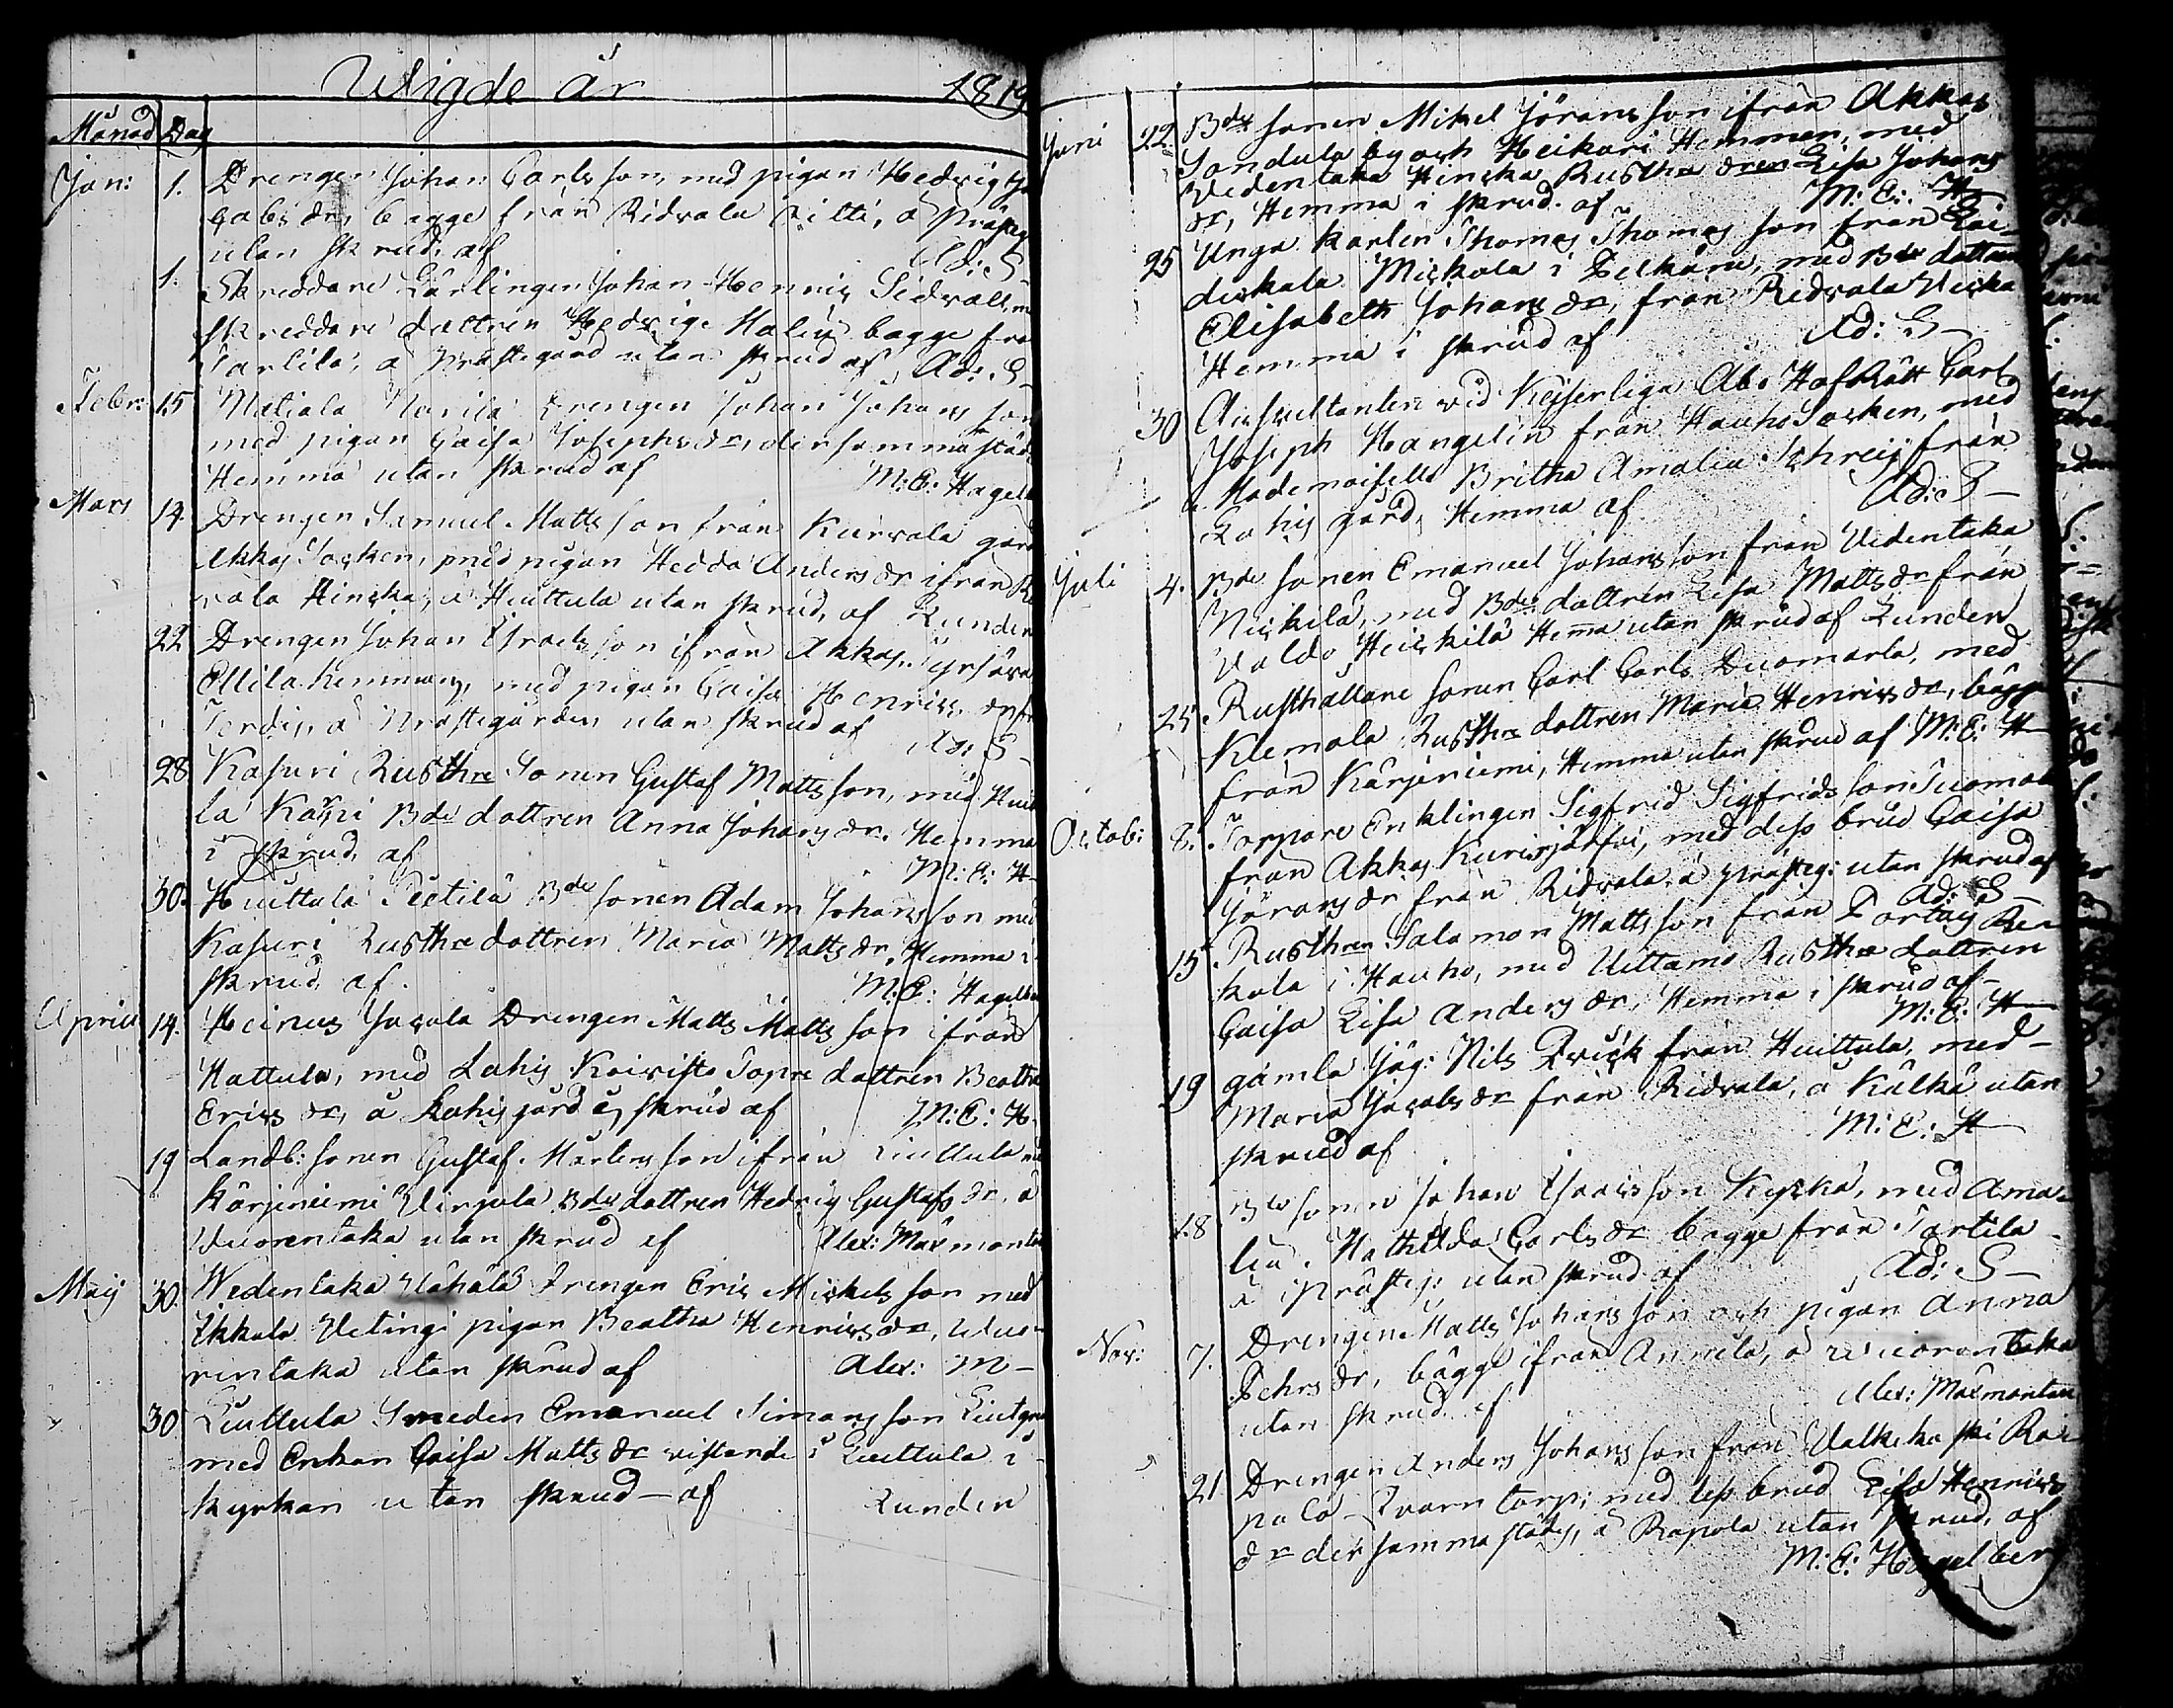 Wigde år 1819
Månad Dag
Jan: 1. Drengen Johan Carls son, med pigan Hedvig Ja
cobs dr, bägge från Ridvala Pilli, å Prästeg
utan skrud, af Ad: S
1. Skreddare Lärlingen Johan Henric Sidvall, m
skreddare dottren Hedvig Malin bägge från
Tarttila, å Prästegård utan skrud af Ad: S
Febr: 15 Matiala Norila Drengen Johan Johans son
med pigan Caisa Josephs dr, dersammastäd
Hemma utan skrud af M: E: Hagelb
Mars 14. Drengen Samuel Matts son från Kurvala gård
Akkas Socken, med pigan Hedda Anders dr ifrån Ri
vala Hinska, å Huittula utan skrud, af Lunden
22 Drengen Johan Israels son ifrån Akkas
Ellila hemman, med pigan Caisa Henrics dr fr
å Prästegården utan skrud af Ad: S
28 Kasuri Rusthre Sonen Gustaf Matts son, med Huit
la Karpi Bde dottren Anna Johans dr. Hemma
i skrud, af M: E: H
30. Huittula Seetilä Bde sonen Adam Johans son med
Kasuri Rusthre dottren Maria Matts dr, Hemma i
skrud af. M: E: Hagelb
April 14. Heinus Jacola Drengen Matts Matts son ifrån
Hattula, med Lahis Koivisto Torpre dottren Beatha
Erics dr, å Lahis gård i skrud af M: E: H.
19 Landb: sonen Gustaf Mårtens son ifrån Liuttula med
Kärjeniemi Virjola Bde dottren Hedvig Gustafs dr, å
Wuorentaka utan skrud af Alex: Maxmontan
Maij 30. Wedentaka Uähälä Drengen Eric Mickels son med
Ikkala Uetingi pigan Beatha Henrics dr, Wuo
rentaka utan skrud af Alex: M
30 Liuttula Smeden Emanuel Simons son
med Enkan Caisa Matts dr vistande i Liuttula i
kyrkan utan skrud af Lunden
Juni 22 Bde sonen Mikel Jörans son ifrån Akkas
Sondula by och Heikari Hemman, med
Uedentaka Hinska Rusthre dren Lisa Johans
dr, Hemma i skrud. af M: E: H
25 Unga karlen Thomas Thomas son från Lai
diskala Mickola i Pelkäne, med Bde dottren
Elisabeth Johans dr, från Ridvala Uecka
Hemma i skrud af Ad: S
30 Auscultanten vid Kejserliga Åbo HofRätt Carl
Joseph Hangelin från Hauho Socken, med
Mademoiselle Britha Amalia Schreij från
Lahis gård, Hemma af Ad: S
Juli 4. Bde sonen Emanuel Johans son från Uedentaka
Nickilä, med Bde dottren Lisa Matts dr från
Uoldo Heickilä Hemma utan skrud af Lunden
25. Rusthållare sonen Carl Carls Duomarla, med
Klemola Rusthre dottren Maria Henrics dr, bägge
från Kärjeniemi, Hemma utan skrud af M: E: H
Octob: 8. Torpare Enklingen Sigfrid Sigfrids son
från Akkas Kurisjärfvi, med dess brud Caisa
Jörans dr från Ridvala, å prästeg: utan skrud af
Ad: S
15. Rusthren Salamon Matts son från Portas
kola i Hauho, med Uettamo Rusthre dottren
Caisa Lisa Anders dr, Hemma i skrud af
M: E: H
19 gamla Jäg: Nils Qvick från Huittula, med
Maria Jacobs dr från Ridvala, å Kälkä utan
skrud af M: E: H
18 Bde sonen Johan Isaacs son Kyckä, med Ama
lia Mathilda Carls dr bägge från Tartila
å Prästeg: utan skrud af Ad: S
Nov: 7. Drengen Matts Johans son och pigan Anna
Pehrs dr, bägge ifrån Annila, å Wuorentaka
utan skrud af Alex: Maxmontan
21 Drengen Anders Johans son från Ualkekoski Roi
pala Qvarn torp; med dess brud Lisa Henrics
dr dersammastädes, å Rapola utan skrud, af
M: E: Hagelberg